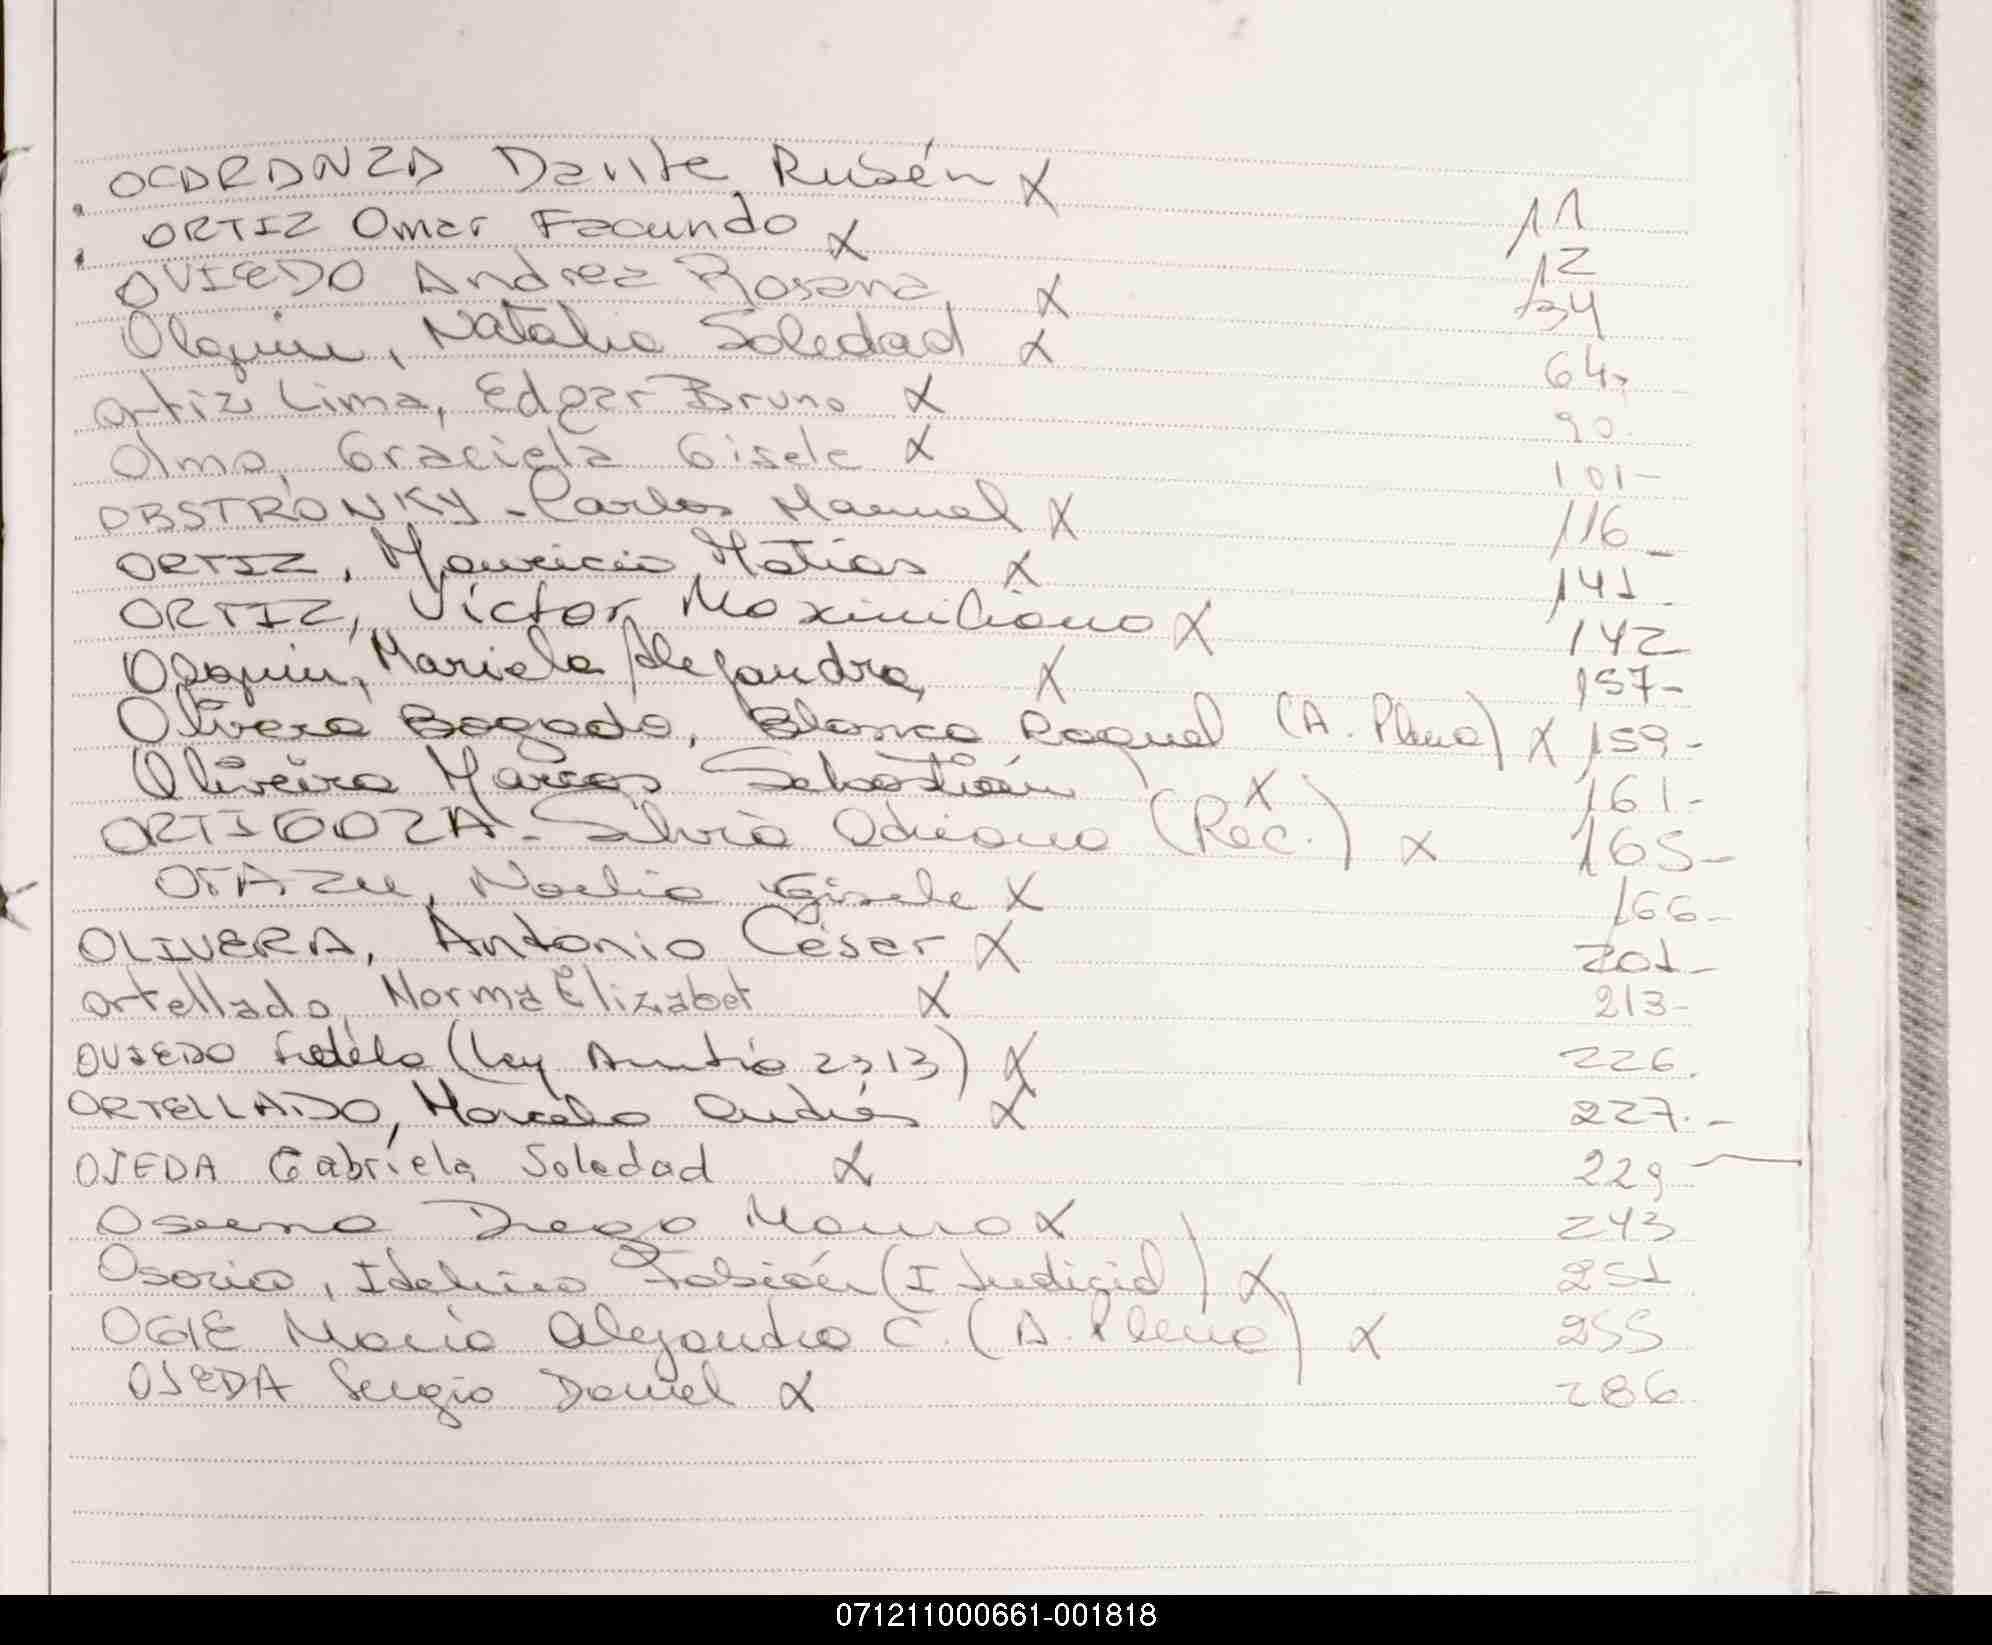 OCARANZA Dante Rubén X 11
ORTIZ Omar Facundo X 12
OVIEDO Andrea Rosana X 34
Olguin, Natalia Soledad X 64-
Ortiz Lima, Edgar Bruno X 90-
Olmo, Graciela Gisele X 101-
OBSTRONKY - Carlos Manuel X 116-
ORTIZ, Mauricio Matias X 141-
ORTIZ, Victor Maximiliano X 142
Olguin, Mariela Alejandra, X 157-
Olivera Bogado, Blanca Raquel (A. Plena) X 159-
Oliveira Marcos Sebastián X 161-
ORTIGOZA - Silvia Adriana (Rec.) X 165-
OTAZU, Noelia Gisele X 166-
OLIVERA, Antonio César X 201-
Ortellado, Norma Elizabet X 213-
OVIEDO (Ley 2313) X 226.
ORTELLADO, Marcelo Andrés X 227.-
OJEDA Gabriela Soledad X 229
Diego X 243
Osorio, Fabián (I Judicial) X 251
OGIE María Alejandra C. (A. Plena) X 255
OJEDA Sergio Daniel X 286
071211000661-001818